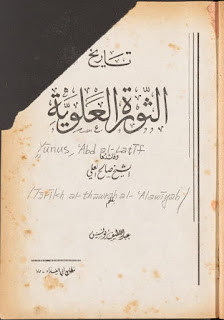 تاريخ
الثورة العلوية
Yūnus, 'Abd al-Laṭīf
وقائدها
الشيخ صالح العلي
(Tārīkh al-thawrah al-'Alawīyah)
عبد اللطيف اليونس